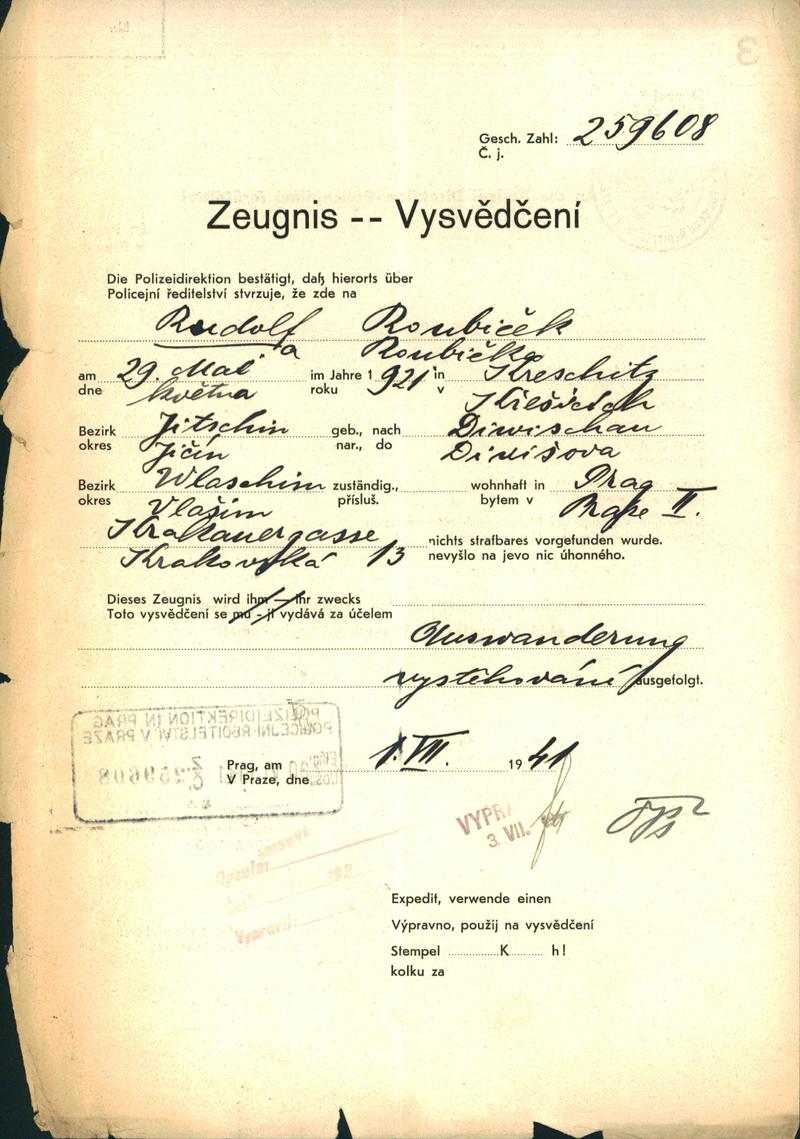 Gesch. Zahl: 259608
Č. j.
Zeugnis -- Vysvědčení
Die Polizeidirektion bestätigt, daß hierorts über
Policejní ředitelství stvrzuje, že zde na
Rudolf Roubiček
a Roubíčka
am 29. Mai im Jahre 1921 in Kreschitz
dne května roku v
Bezirk Jitschin geb., nach Diwischau
okres Jičín nar., do Divišova
Bezirk Wlaschim zuständig., wohnhaft in Prag
okres Vlašim přísluš. bytem v Praze II.
Krakauergasse nichts strafbares vorgefunden wurde.
Krakovská 13 nevyšlo na jevo nic úhonného.
Dieses Zeugnis wird ihm — ihr zwecks
Toto vysvědčení se mu - jí vydává za účelem
Auswanderung
vystěhování ausgefolgt.
POLIZEIDIREKTION IN PRAG
POLICEJNÍ ŘEDITELSTVÍ V PRAZE
259608
Prag, am 1. VII. 1941
V Praze, dne
VYPR
3. VII.
Expedit, verwende einen
Výpravno, použij na vysvědčení
Stempel K h!
kolku za